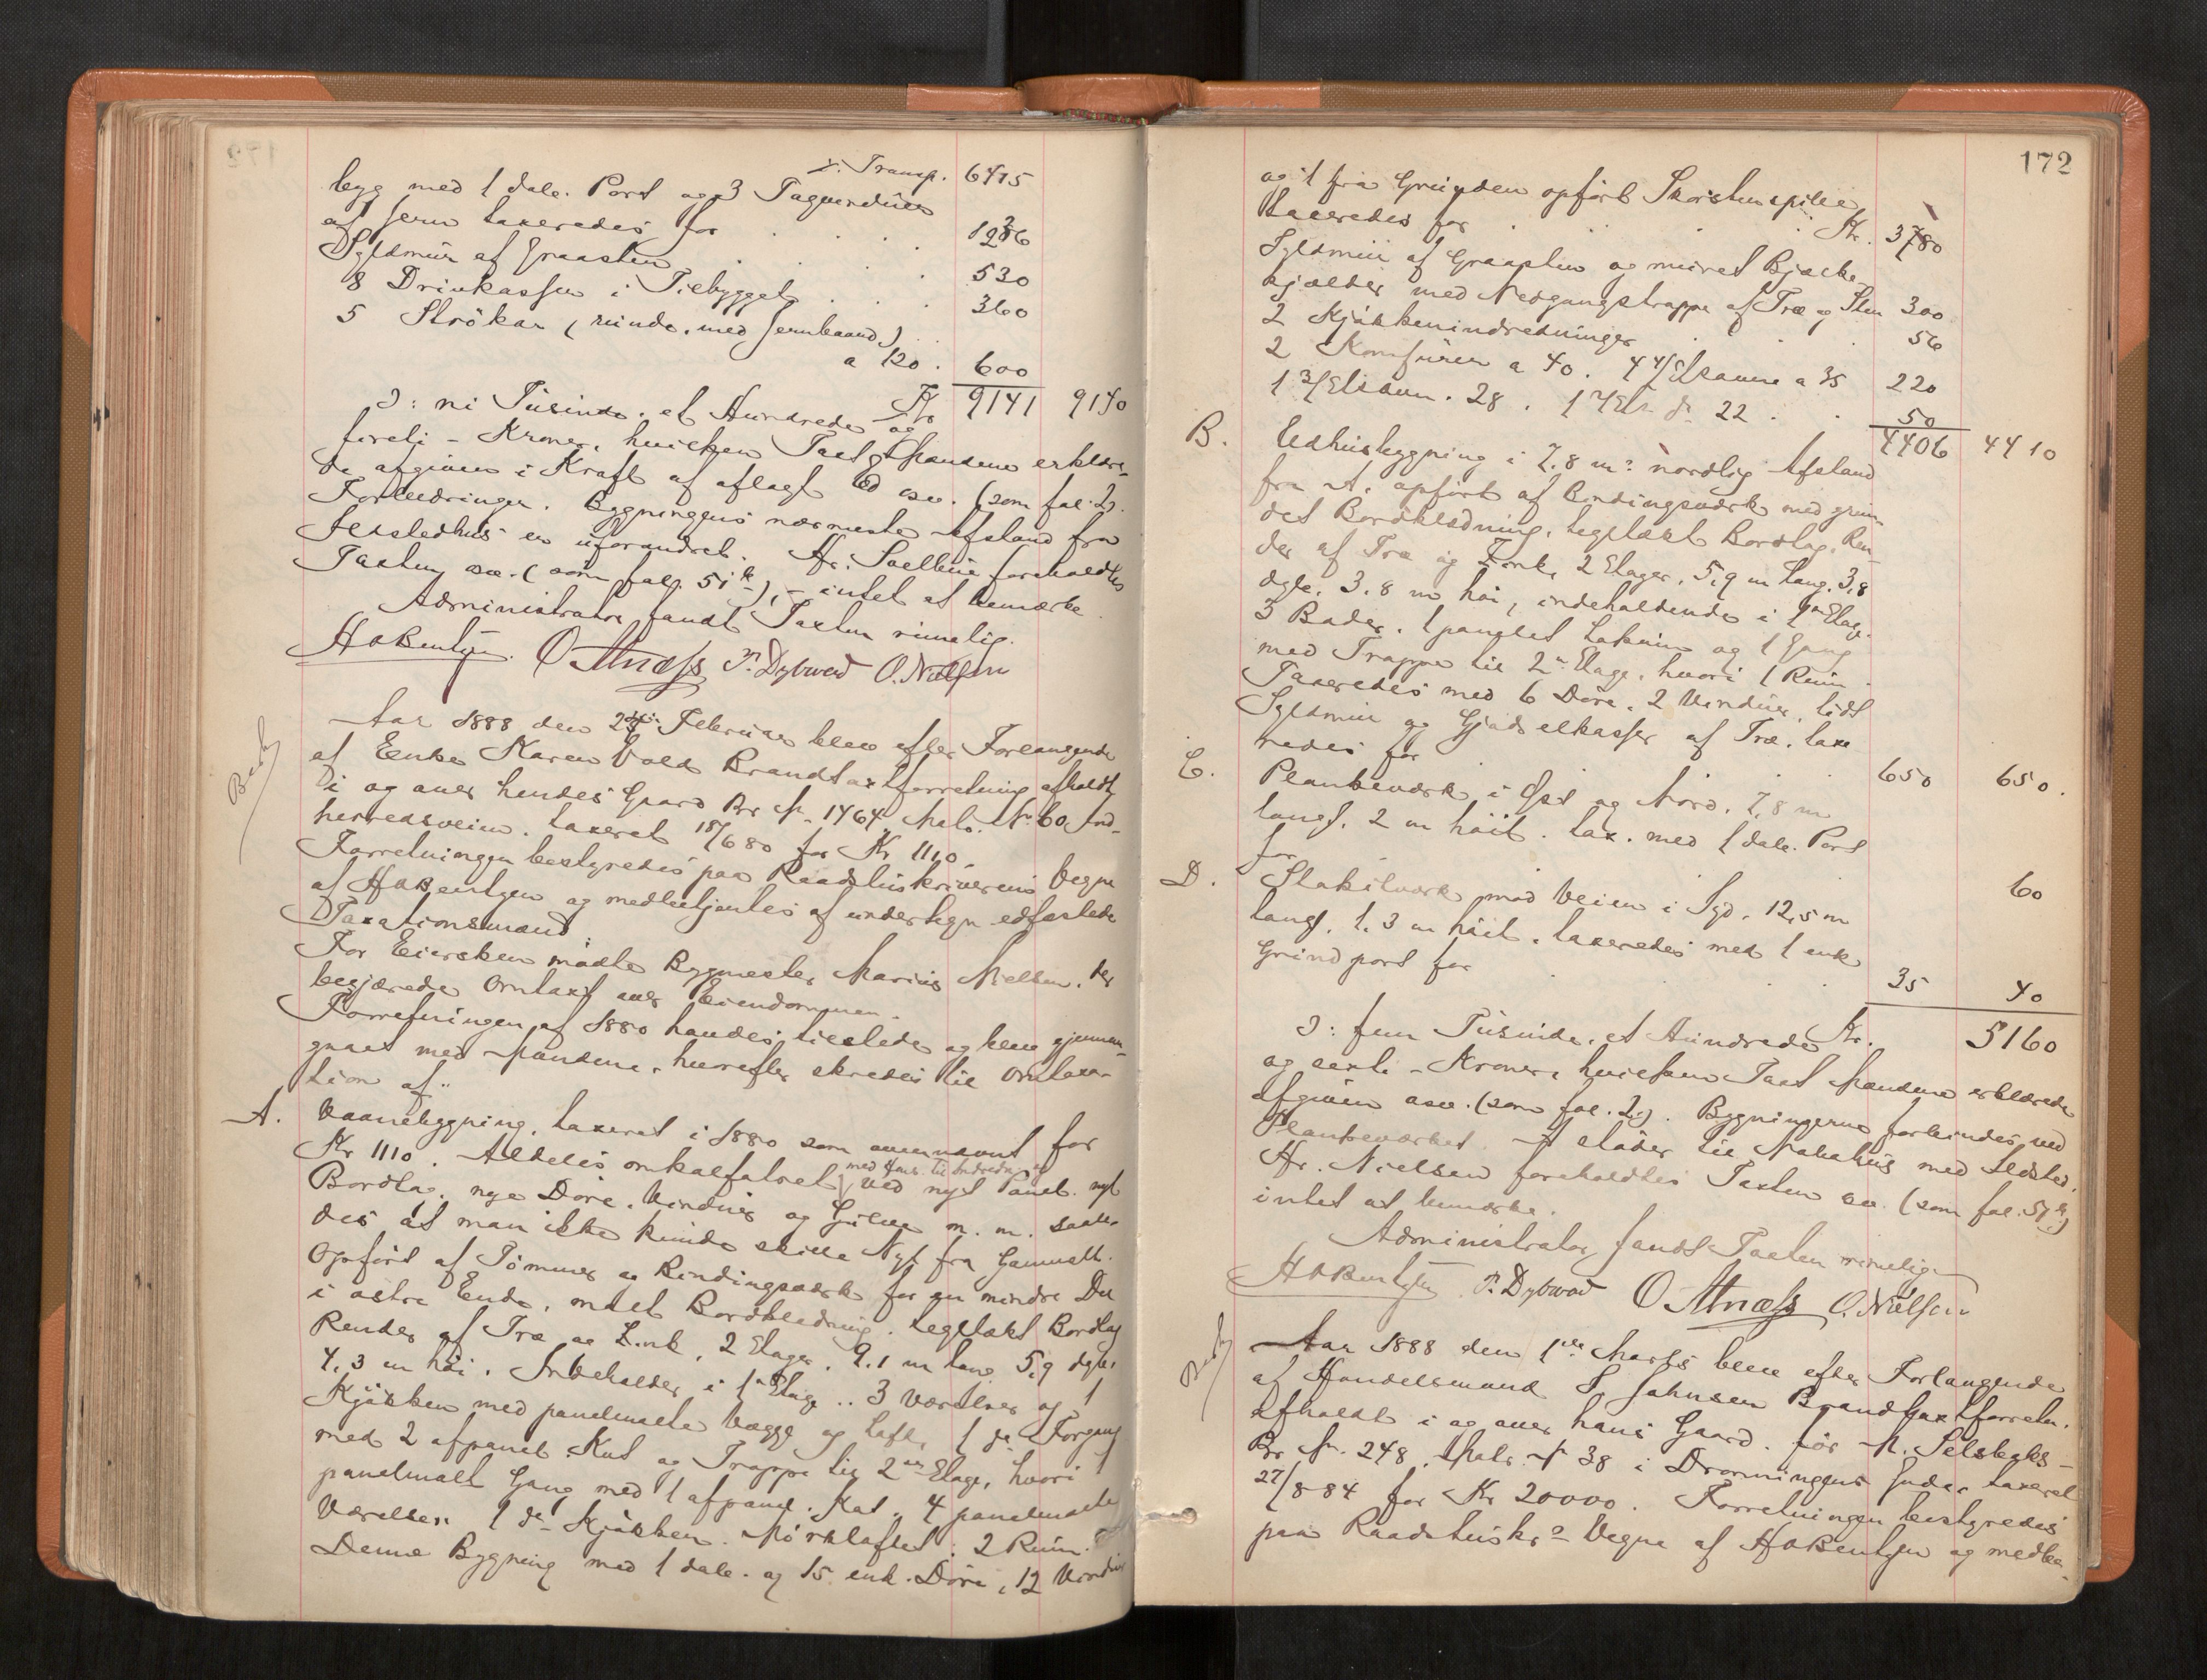 Transp. 6415
byg med 1 dale. Port og 3 Tagvinduer
af Jern taxeredes for 1236
Syldmur af Graasten 530
8 Drinkasser i Tilbygget 360
5 Strökar (runde, med Jernbaand)
a 120. 600
Kr 9141 9140
ɔ: ni Tusinde, et Hundrede og
förti - Kroner, hvilken Taxt Mændene erklære-
de afgiven i Kraft af aflagt Ed osv. (som fol. 2).
Forandringer. Bygningens nærmeste Afstand fra
Ildstedhus er uforandret. Hr. foreholdtes
Taxten osv. (som fol. 51), - intet at bemærke.
Administrator fandt Taxten rimelig.
HOBentzen. O Alnæss P. Dybwad O. Nielsen
Aar 1888 den Februar blev efter Forlangende
af Enke Karen Vold Brandtaxtforretning afholdt
i og over hendes Gaard Br No. 1464 Matr. No. 60 Ind-
herredsveien. taxeret 18/6 80 for Kr 1110.
Forretningen bestyredes paa Raadstuskriverens Vegne
af HOBentzen og medbetjentes af undertegn. edfæstede
Taxationsmænd.
For Eiersken mødte Bygmester Marius Nielsen, der
begjærede Omtaxt over Eiendommen.
Forretningen af 1880 havdes tilstede og blev gjennem-
gaaet med Mændene, hvorefter skredes til Omtaxa-
tion af:
A. Vaanebygning, taxeret i 1880 som ovennævnt for
Kr 1110. Aldeles omkalfatret ved nyt Panel. nyt
Bordtag, nye Döre, Vinduer og Gulve m. m. saale-
des at man ikke kunde skille Nyt fra Gammelt.
Opfört af Tömmer og Bindingsværk for en mindre Del
i östre Ende, malt Bordklædning, teglækt Bordtag
Render af Træ og Zink, 2 Etager, 9.1 m lang 5,9 dyb,
4,3 m höi. Indeholder i 1ste Etage .. 3 Værelser og 1
Kjökken med panelmalte Vægge og Lofte, 1 do Forgang
med 2 afpanel. Rut og Trappe til 2den Etage, hvori
panelmalt Gang med 1 afpanel. Rut, 4 panelmalte
Værelser. 1 do Kjökken. Mörkloftet: 2 Rum.
Denne Bygning med 1 dale. og 15 enk. Döre, 12 Vinduer
172
og 1 fra Grunden opfört Skorstenspibe
taxeredes for Kr. 3780
Syldmur af Graasten og muret Bjælke-
kjælder med Nedgangstrappe af Træ og Sten 300
2 Kjökkenindredninger 56
2 Komfurer a 40. 4 a 35 220
1 28. 1 do 22 50
4406 4410
B. Udhusbygning i 7.8 m: nordlig Afstand
fra A. opfört af Bindingsværk med grun-
det Bordklædning, teglækt Bordtag, Ren-
der af Træ og Zink, 2 Etager, 5,9 m lang, 3,8
dyb, 3,8 m höi, indeholdende i 1ste Etage
3 Boder, 1 panelet Lokum og 1 Gang
med Trappe til 2. Etage, hvori 1 Rum.
Taxeredes med 6 Döre, 2 Vinduer, lidt
Syldmur og Gjödselkasser af Træ, taxe
redes for 650 650.
C. Plankeværk i Öst og Nord. 7,8 m
langt, 2 m höit. tax. med 1 dale. Port
for 60
D. Stakitværk mod Veien i Syd. 12,5 m
langt, 1,3 m höit, taxeredes med 1 enk
Grindport for 35 40
Kr. 5160
ɔ: fem Tusinde, et Hundrede
og sexti - Kroner, hvilken Taxt Mændene erklærede
afgiven osv. (som fol. 2). Bygningerne forbindes ved
Plankeværket. A stöder til Nabohus med Ildsted.
Hr. Nielsen foreholdtes Taxten osv. (som fol. 51)
intet at bemærke.
Administrator fandt Taxten rimelig
HOBentzen P. Dybwad O Alnæss O. Nielsen
Aar 1888 den 1ste Marts blev efter Forlangende
af Handelsmand Johnsen Brandtaxtforretn.
afholdt i og over hans Gaard. för A. Selsbaks -
Br No. 248, Matr. No 38 i Dronningens Gade, taxeret
27/8 84 for Kr 20000. Forretningen bestyredes
paa Raadstuskrs Vegne af HOBentzen og medbe-